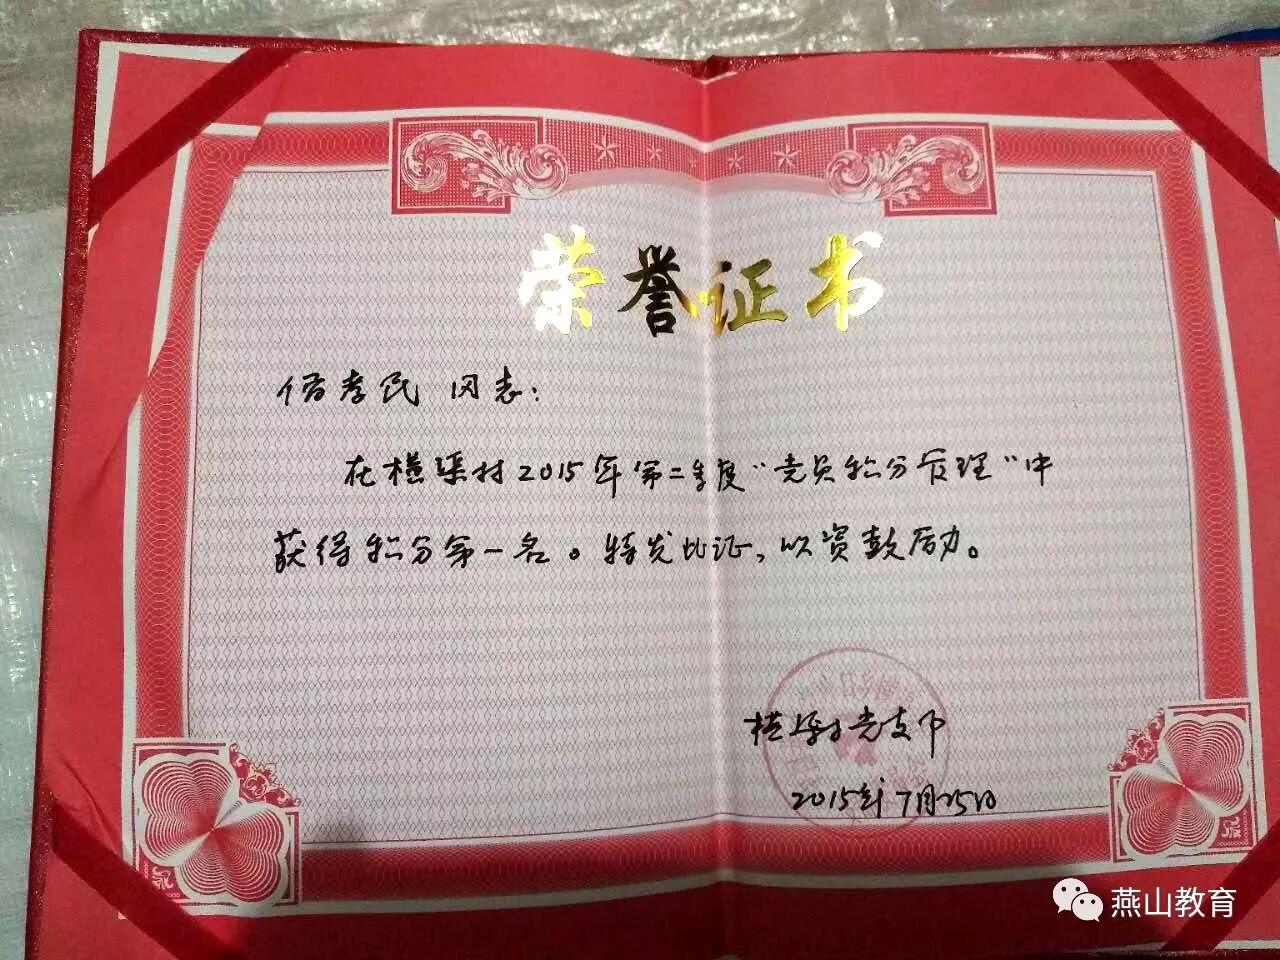 荣誉证书
孝民 同志：
在横渠村2015年第二季度“党员积分管理”中
获得积分第一名。特发此证，以资鼓励。
横渠村党支部
2015年7月25日
燕山教育